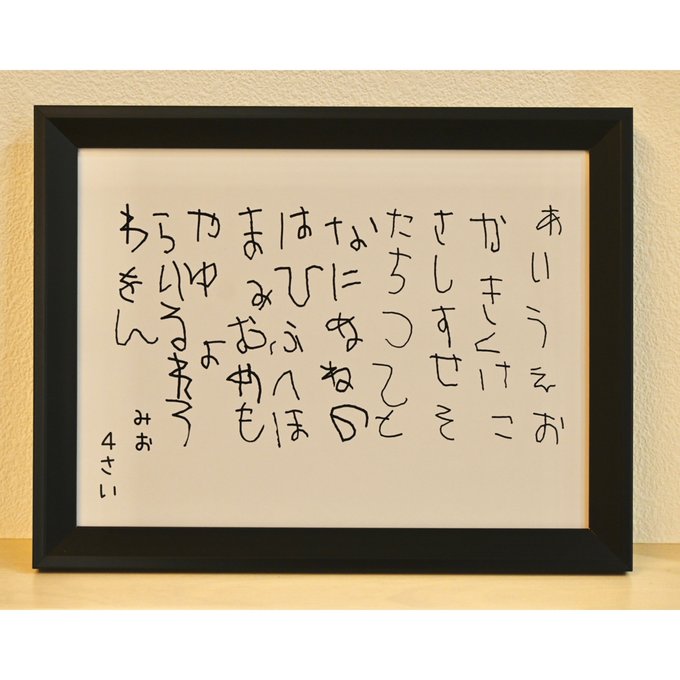 あいうえお
かきくけこ
さしすせそ
たちつてと
なにぬねの
はひふへほ
まみむめも
やゆよ
らりるれろ
わをん
みお
4さい